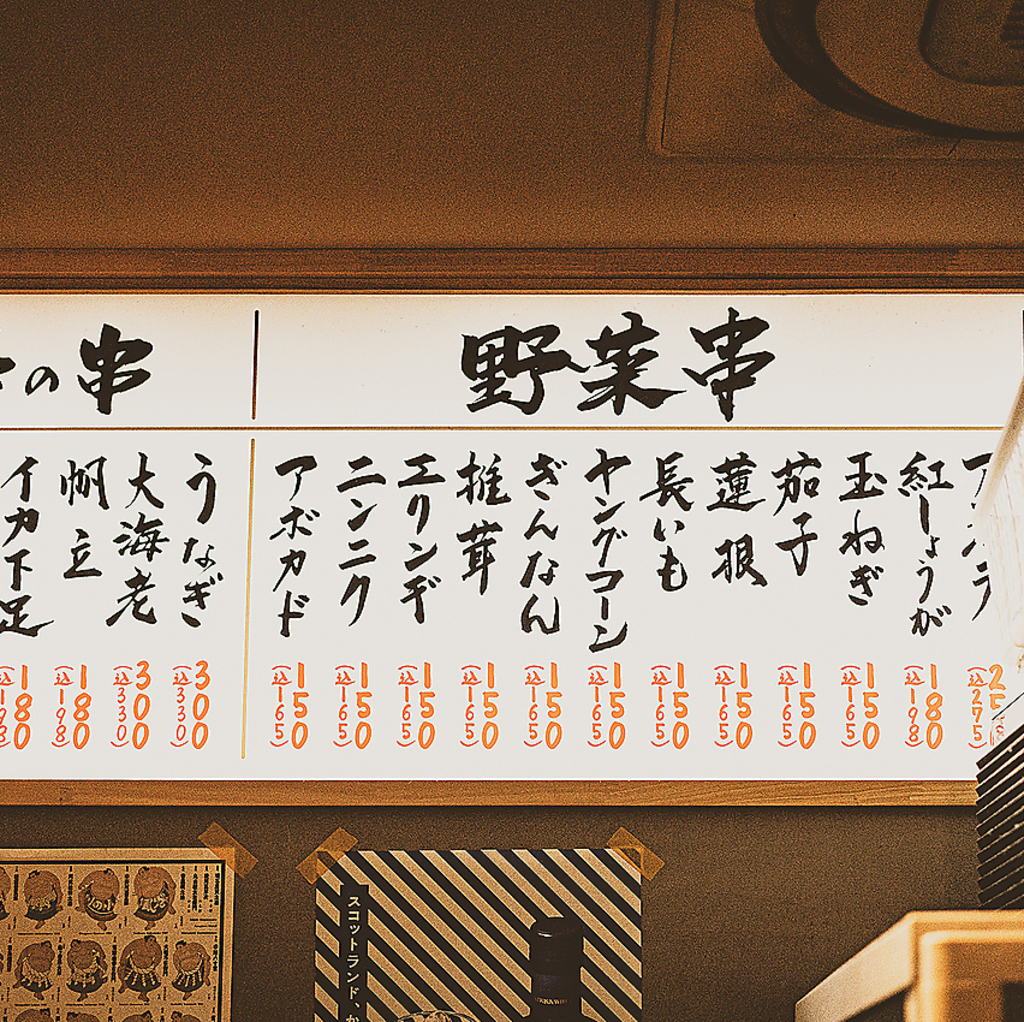 野菜串
アスパラ
250
(込275)
紅しょうが
180
(込198)
玉ねぎ
150
(込165)
茄子
150
(込165)
蓮根
150
(込165)
長いも
150
(込165)
ヤングコーン
150
(込165)
ぎんなん
150
(込165)
椎茸
150
(込165)
エリンギ
150
(込165)
ニンニク
150
(込165)
アボカド
150
(込165)
の串
うなぎ
300
(込330)
大海老
300
(込330)
帆立
180
(込198)
イカ下足
180
(込198)
スコットランド、か